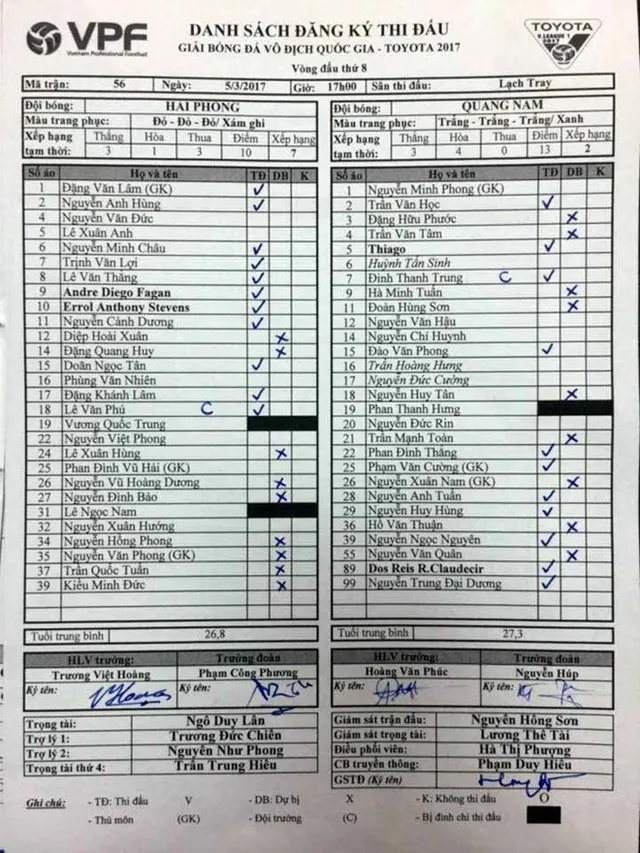 VPF
Vietnam Professional Football
DANH SÁCH ĐĂNG KÝ THI ĐẤU
GIẢI BÓNG ĐÁ VÔ ĐỊCH QUỐC GIA - TOYOTA 2017
TOYOTA
V.LEAGUE 1
2017
Vòng đấu thứ 8
Mã trận: 56 Ngày: 5/3/2017 Giờ: 17h00 Sân thi đấu: Lạch Tray
Đội bóng: HAI PHONG
Màu trang phục: Đỏ - Đỏ - Đỏ/ Xám ghi
Xếp hạng tạm thời: Thắng Hòa Thua Điểm Xếp hạng
3 1 3 10 7
Số áo Họ và tên TĐ DB K
1 Đặng Văn Lâm (GK) ✓
2 Nguyễn Anh Hùng ✓
4 Nguyễn Văn Đức
5 Lê Xuân Anh
6 Nguyễn Minh Châu ✓
7 Trịnh Văn Lợi ✓
8 Lê Văn Thắng ✓
9 Andre Diego Fagan ✓
10 Errol Anthony Stevens ✓
11 Nguyễn Cảnh Dương ✓
12 Diệp Hoài Xuân X
14 Đặng Quang Huy X
15 Doãn Ngọc Tân ✓
16 Phùng Văn Nhiên
17 Đặng Khánh Lâm ✓
18 Lê Văn Phú C ✓
19 Vương Quốc Trung
22 Nguyễn Việt Phong
24 Lê Xuân Hùng X
25 Phan Đình Vũ Hải (GK)
26 Nguyễn Vũ Hoàng Dương X
27 Nguyễn Đình Bảo X
31 Lê Ngọc Nam
32 Nguyễn Xuân Hướng
34 Nguyễn Hồng Phong X
35 Nguyễn Văn Phong (GK) X
37 Trần Quốc Tuấn X
39 Kiều Minh Đức X
Tuổi trung bình 26,8
HLV trưởng: Trưởng đoàn
Trương Việt Hoàng Phạm Công Phương
Ký tên: Ký tên:
Đội bóng: QUANG NAM
Màu trang phục: Trắng - Trắng - Trắng/ Xanh
Xếp hạng tạm thời: Thắng Hòa Thua Điểm Xếp hạng
3 4 0 13 2
Số áo Họ và tên TĐ DB K
1 Nguyễn Minh Phong (GK)
2 Trần Văn Học ✓
3 Đặng Hữu Phước X
4 Trần Văn Tâm X
5 Thiago ✓
6 Huỳnh Tấn Sinh
7 Đinh Thanh Trung C ✓
9 Hà Minh Tuấn X
11 Đoàn Hùng Sơn X
12 Nguyễn Văn Hậu
14 Nguyễn Chí Huynh
15 Đào Văn Phong ✓
16 Trần Hoàng Hưng
17 Nguyễn Đức Cường
18 Nguyễn Huy Tân X
19 Phan Thanh Hưng
20 Nguyễn Đức Rin
21 Trần Mạnh Toàn X
22 Phan Đình Thắng ✓
25 Phạm Văn Cường (GK) ✓
26 Nguyễn Xuân Nam (GK) X
28 Nguyễn Anh Tuấn ✓
29 Nguyễn Huy Hùng ✓
36 Hồ Văn Thuận X
39 Nguyễn Ngọc Nguyên ✓
55 Nguyễn Văn Quân X
89 Dos Reis R.Claudecir ✓
99 Nguyễn Trung Đại Dương ✓
Tuổi trung bình 27,3
HLV trưởng: Trưởng đoàn
Hoàng Văn Phúc Nguyễn Húp
Ký tên: Ký tên:
Trọng tài: Ngô Duy Lân
Trợ lý 1: Trương Đức Chiến
Trợ lý 2: Nguyễn Như Phong
Trọng tài thứ 4: Trần Trung Hiếu
Giám sát trận đấu: Nguyễn Hồng Sơn
Giám sát trọng tài: Lương Thế Tài
Điều phối viên: Hà Thị Phượng
CB truyền thông: Phạm Duy Hiếu
GSTĐ (Ký tên)
Ghi chú: - TĐ: Thi đấu V - DB: Dự bị X - K: Không thi đấu O
- Thủ môn (GK) - Đội trưởng (C) - Bị đình chỉ thi đấu